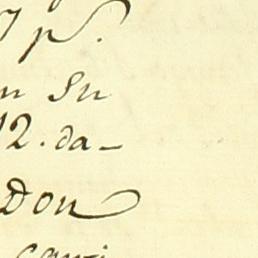 7 ps.
n su
12. da-
Don